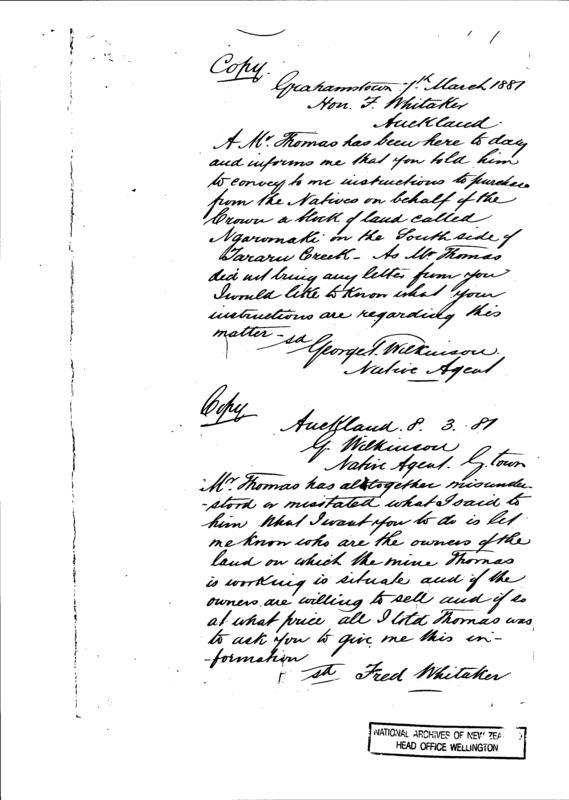 Copy.
Grahamstown 7th March 1881
Hon. F. Whitaker
Auckland.
A Mr. Thomas has been here to day
and informs me that you told him
to convey to me instructions to purchase
from the Natives on behalf of the
Crown a block of land called
Ngaromaki on the South side of
Tararu Creek - As Mr Thomas
did not bring any letter from you
I would like to know what your
instructions are regarding this
matter - sd
George T. Wilkinson.
Native Agent
Copy
Auckland. 8. 3. 81
G. Wilkinson
Native Agent. G. town
Mr. Thomas has altogether misunder-
-stood or misstated what I said to
him What I want you to do is let
me know who are the owners of the
land on which the mine Thomas
is working is situate and if the
owners are willing to sell and if so
at what price all I told Thomas was
to ask you to give me this in-
-formation
sd Fred Whitaker
NATIONAL ARCHIVES OF NEW ZEA
HEAD OFFICE WELLINGTON